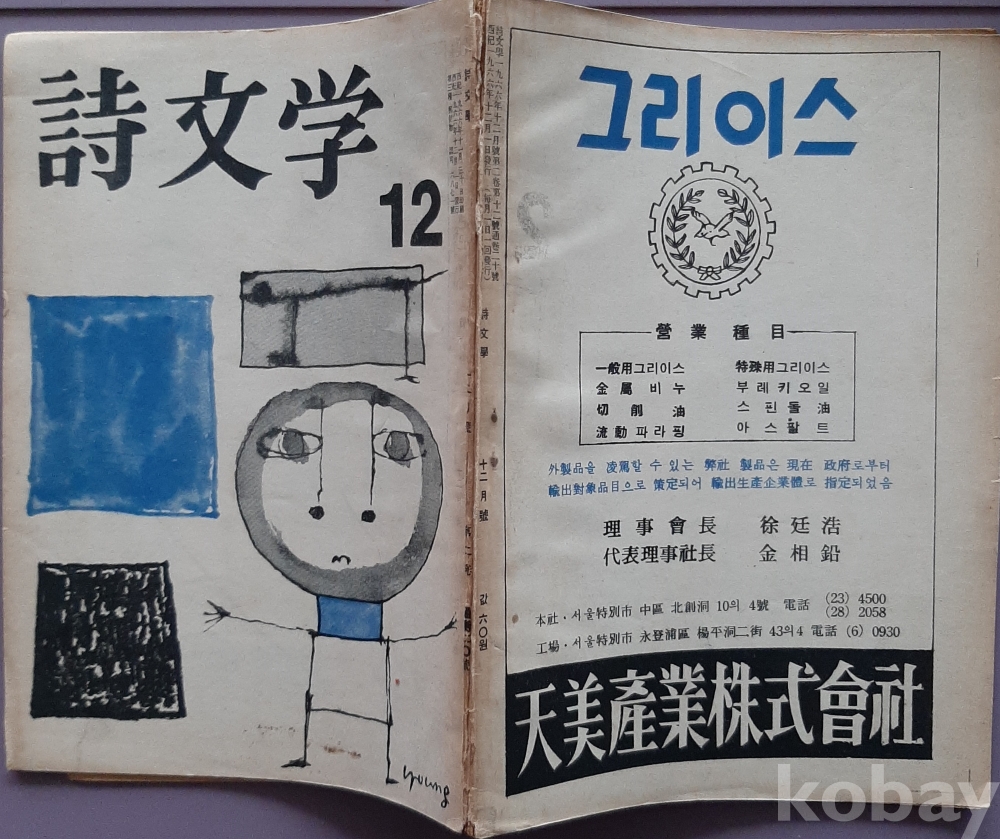 詩文学
12
young
詩文學 一九六六年十二月號 第二卷 第十二號 通卷 二十號
西紀一九六六年十二月一日發行 (每月一回一日發行)
詩文學
十二月號
값 六〇원
그리이스
營業種目
一般用그리이스 特殊用그리이스
金屬비누 부레키오일
切削油 스핀돌油
流動파라핑 아스팔트
外製品을 凌駕할 수 있는 弊社 製品은 現在 政府로부터
輸出對象品目으로 策定되어 輸出生産企業體로 指定되었음
理事會長 徐廷浩
代表理事社長 金相鉛
本社·서울特別市 中區 北創洞 10의 4號 電話 (23) 4500
(28) 2058
工場·서울特別市 永登浦區 楊平洞二街 43의4 電話 (6) 0930
天美產業株式會社
kobay